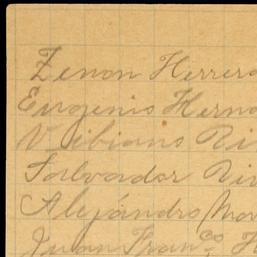 Zenon Herrera
Eugenio Herna
N Bibiano Ri
Salvador Riv
Alejandro Mor
Juan Franco H